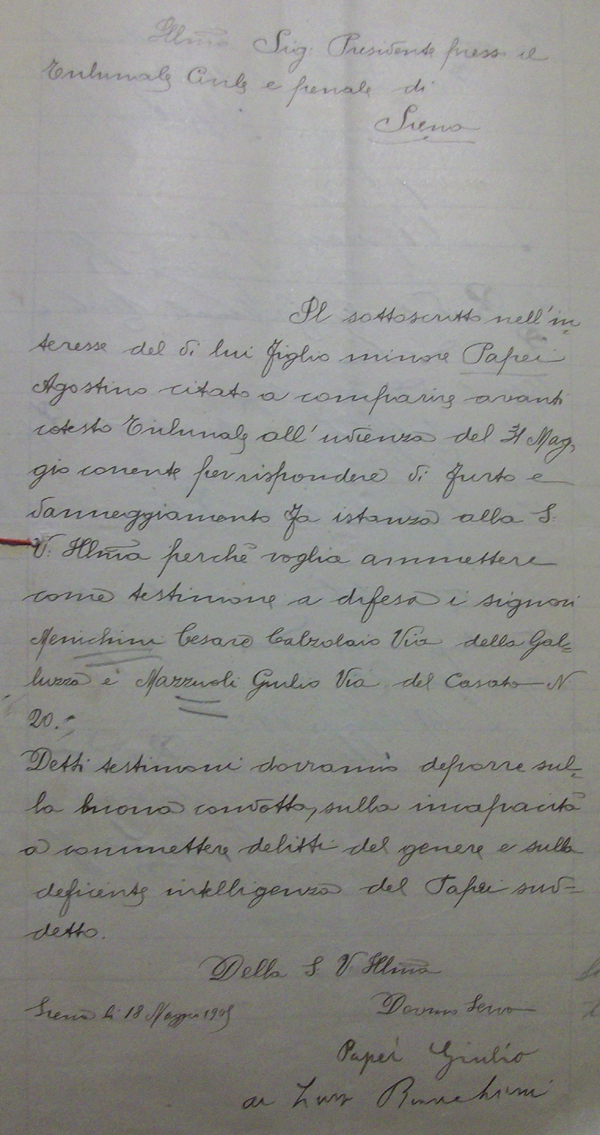 Illmo Sig. Presidente presso il
Tribunale Civile e penale di
Siena
Il sottoscritto nell'in=
teresse del di lui figlio minore Papei
Agostino citato a comparire avanti
cotesto Tribunale all'udienza del 31 Mag,
gio corrente per rispondere di furto e
danneggiamento fa istanza alla S.
V. Illma perchè voglia ammettere
come testimone a difesa i signori
Menichini Cesare Calzolaio Via della Gal=
luzza e Mazzuoli Giulio Via del Casato N
20.=
Detti testimoni dovranno deporre sul=
la buona condotta, sulla incapacità
a commettere delitti del genere e sulla
deficente intelligenza del Papei sud=
detto.
Della S. V. Illma
Siena li 18 Maggio 1905
Devmo Servo
Papei Giulio